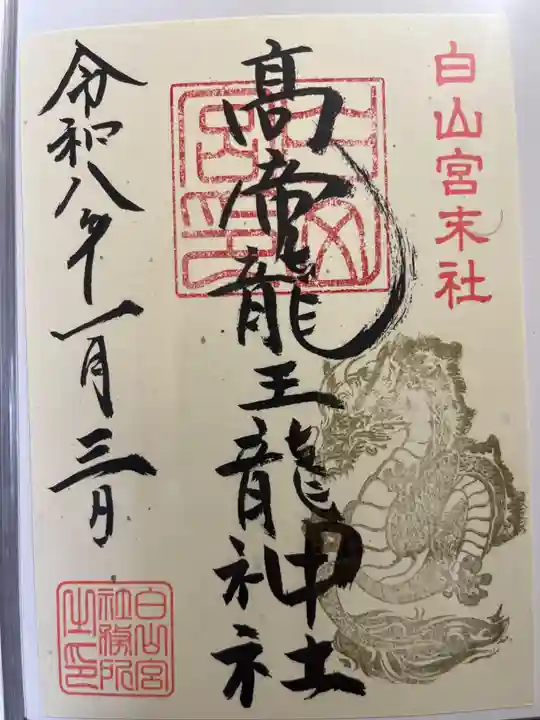 白山宮末社
高帝龍王龍神社
令和八年一月三日
白山宮
社務所
之印